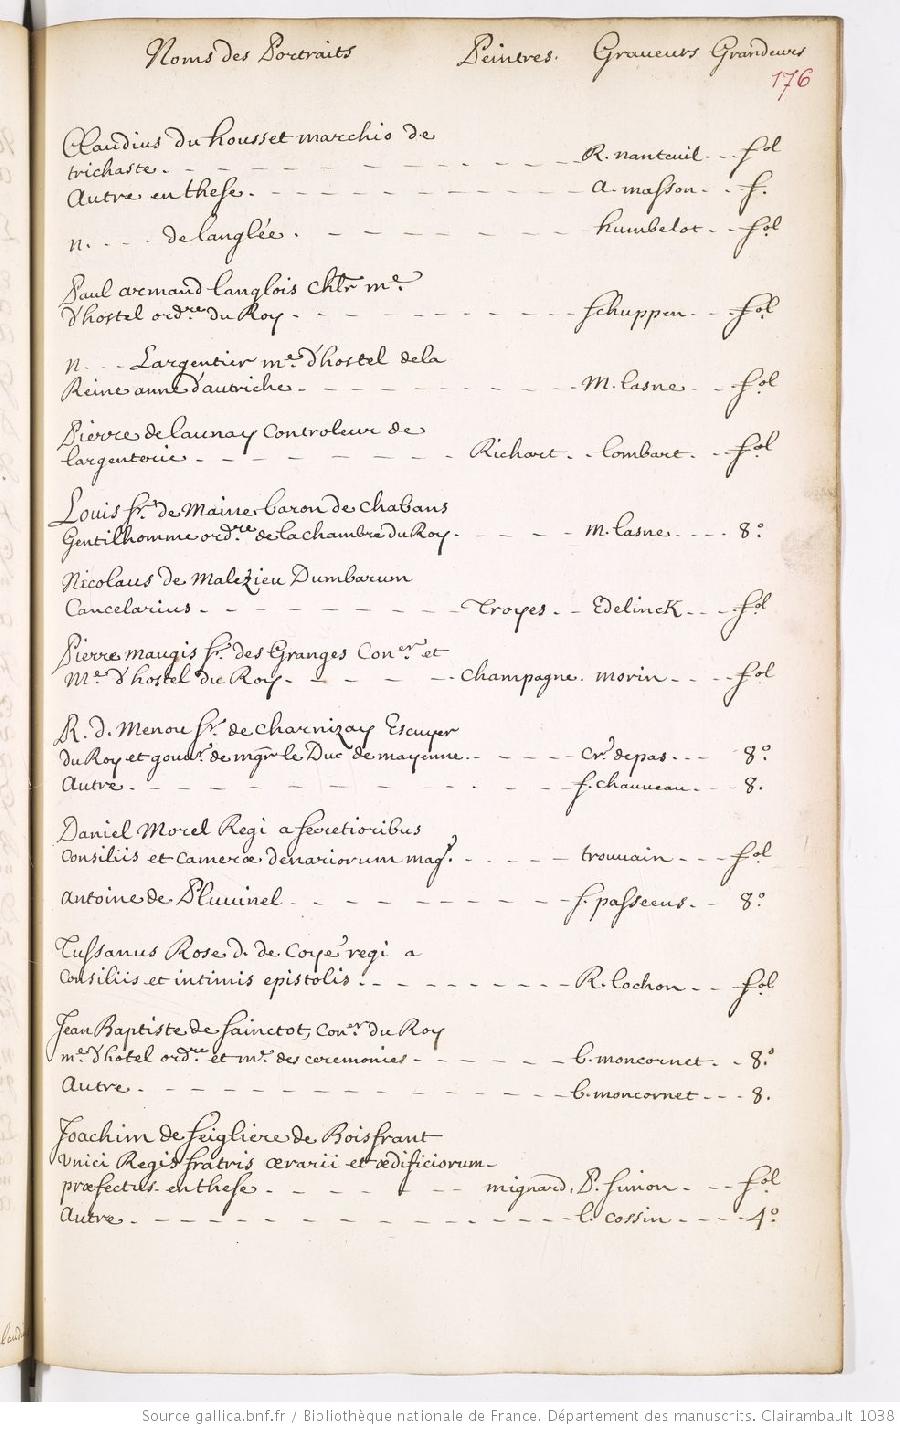 Noms des Portraits Peintres. Graveurs Grandeurs
176
Claudius du housset marchio de
trichaste. R. nanteuil fol
Autre en these. a. masson f.
n. . . . de langlée. humbelot fol
Paul armand langlois chlr me
d'hostel ordre du Roy schuppen fol
n. . . . Largentier me d'hostel dela
Reine anne d'autriche M. lasne fol
Pierre de launay Controleur de
largenterie Richart lombart fol
Louis sr. de Maine baron de chabans
Gentilhomme ordre de la chambre du Roy. m. lasne 8°
Nicolaus de Malezieu Dumbarum
Cancelarius Troyes Edelinck fol
Pierre maugis sr. des Granges Coner et
Me d'hostel du Roy champagne morin fol
R. d. Menou sr. de charnizay Escuyer
du Roy et gouvr. de mgr le Duc de mayenne cr. de pas 8°
Autre. f. chauveau 8.
Daniel Morel Regi a secretioribus
consiliis et camerœ denariorum magr. trouuain fol
antoine de Pluuinel f. passeeus 8°
Tussanus Rose d. de Coye regi a
consiliis et intimis epistolis R. lochon fol
Jean Baptiste de sainctot, Coner du Roy
me d'hotel ordre et mr. des ceremonies b. moncornet 8°
Autre b. moncornet 8.
Joachim de seigliere de Boisfrant
unici Regis fratris œrarii et œdificiorum
prœfectus en these mignard, P. simon fol
Autre l. cossin 4°
Source gallica.bnf.fr / Bibliothèque nationale de France. Département des manuscrits. Clairambault 1038